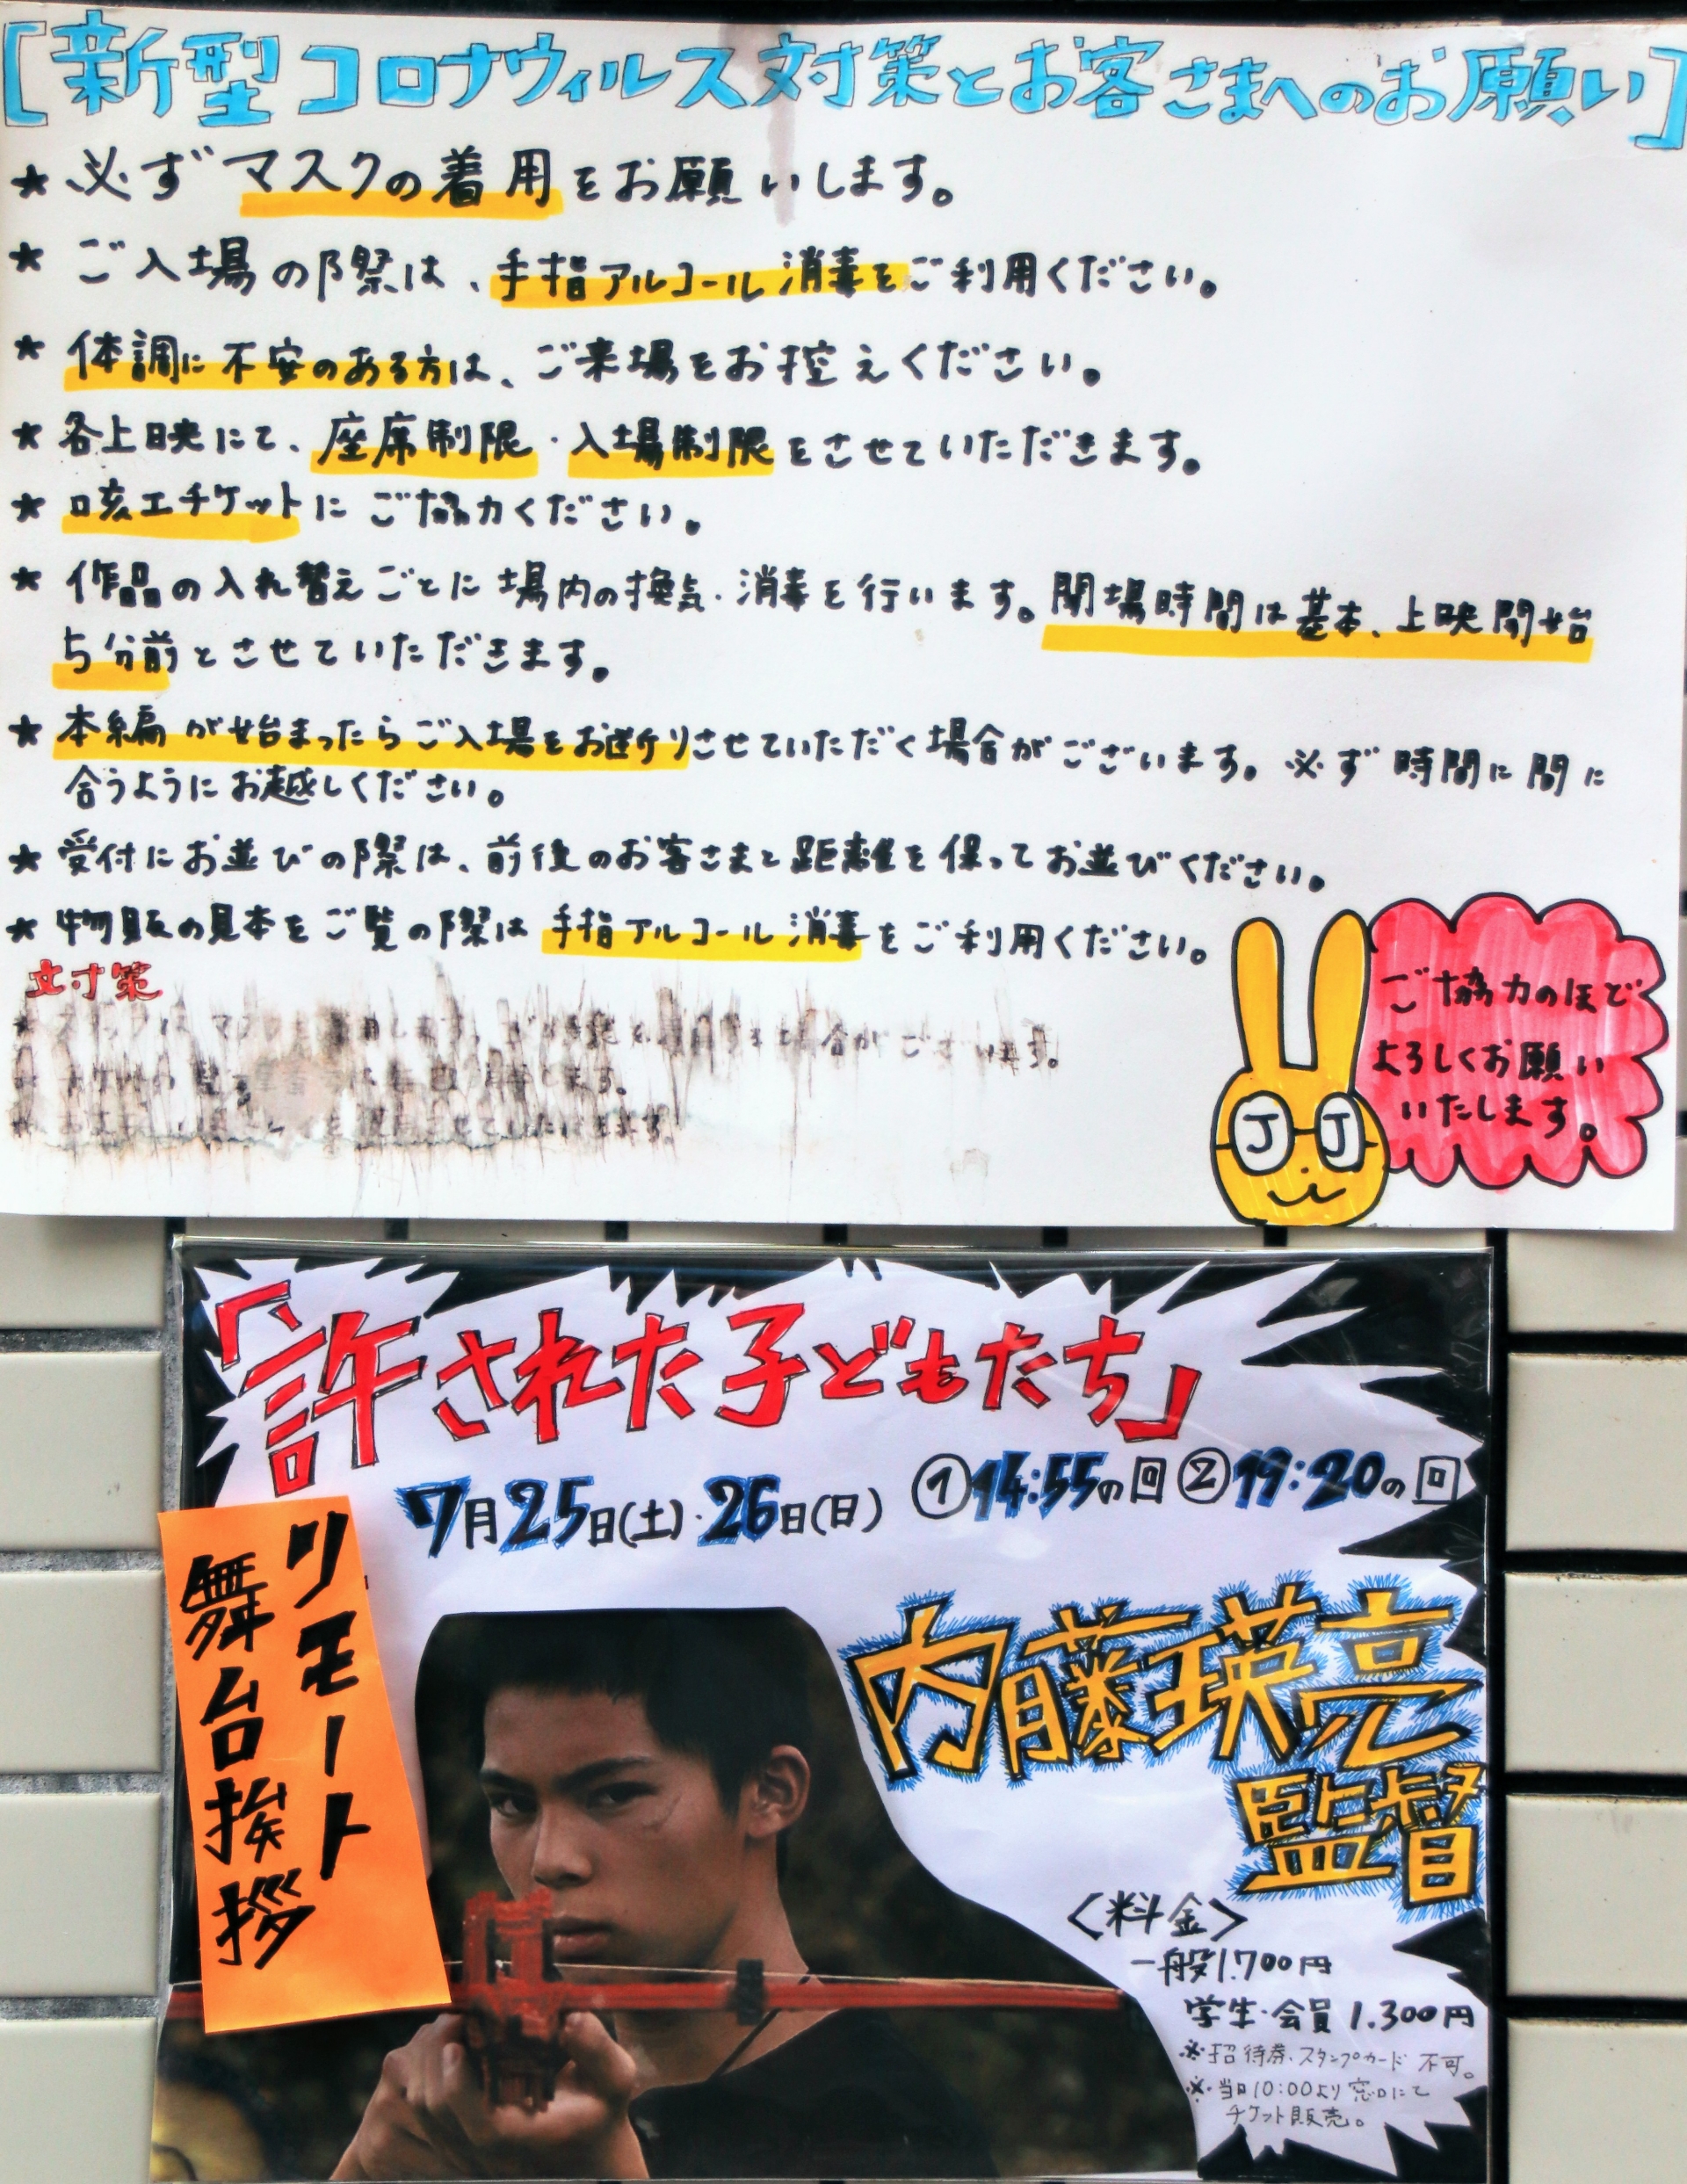 [新型コロナウィルス対策とお客さまへのお願い]
★必ずマスクの着用をお願いします。
★ご入場の際は、手指アルコール消毒をご利用ください。
★体調に不安のある方は、ご来場をお控えください。
★各上映にて、座席制限・入場制限をさせていただきます。
★咳エチケットにご協力ください。
★作品の入れ替えごとに場内の換気・消毒を行います。開場時間は基本、上映開始
5分前とさせていただきます。
★本編が始まったらご入場をお断りさせていただく場合がございます。必ず時間に間に
合うようにお越しください。
★受付にお並びの際は、前後のお客さまと距離を保ってお並びください。
★物販の見本をご覧の際は手指アルコール消毒をご利用ください。
対策
場合がございます。
します。
させていただきます。
ご協力のほど
よろしくお願い
いたします。
J J
「許された子どもたち」
7月25日(土)・26日(日) ①14:55の回 ②19:20の回
リモート
舞台挨拶
内藤瑛亮
監督
〈料金〉
一般1.700円
学生・会員 1.300円
※招待券、スタンプカード不可。
※当日10:00より窓口にて
チケット販売。